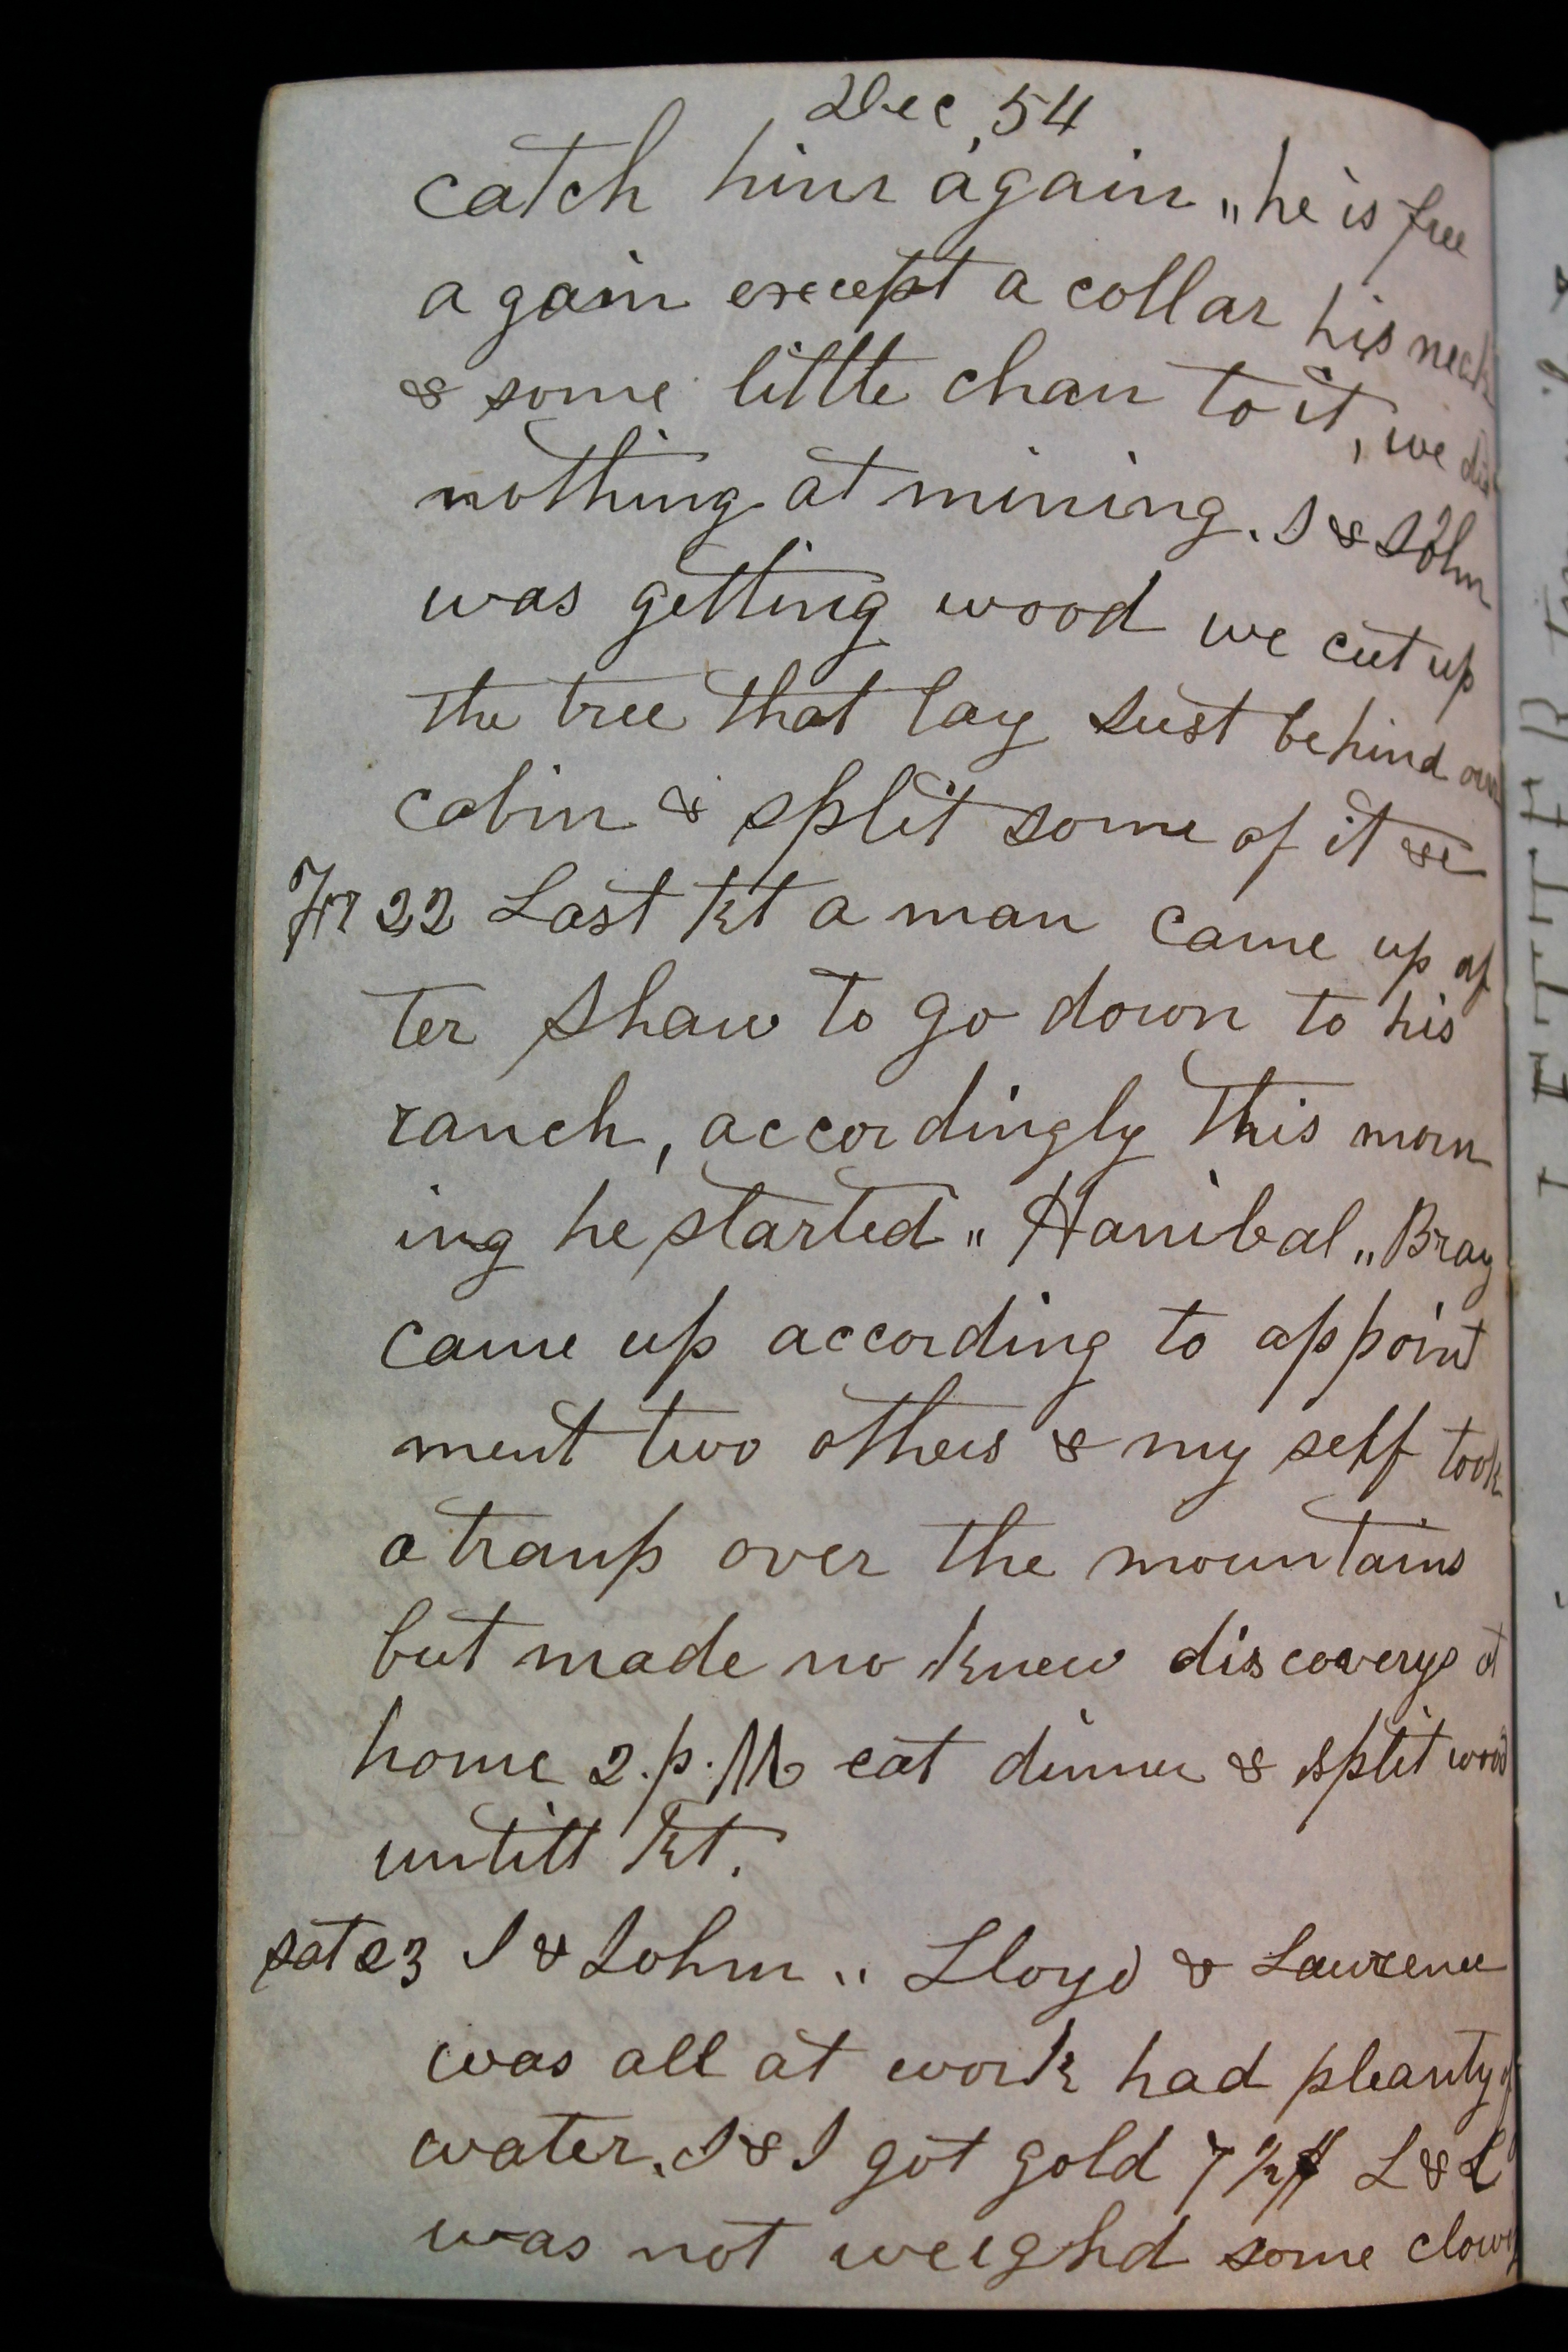 Dec, 54
catch him again „ he is free
again except a collar his neck
& some little chan to it, we did
nothing at mining. I & John
was getting wood we cut up
the tree that lay Just behind our
cabin & split some of it &c
Fr 22 Last Kt a man came up af
ter Shaw to go down to his
ranch, accordingly this morn
ing he started „ Hanibal „ Bray
came up according to appoint
ment two others & my self took
a tramp over the mountains
but made no knew discoverys at
home 2.p.M eat dinner & split wood
untill Kt.
sat 23 I & John „ Lloyd & Lawrence
was all at work had pleanty of
water. J & I got gold 7½$ L & L
was not weighd some clowdy
L ETTER